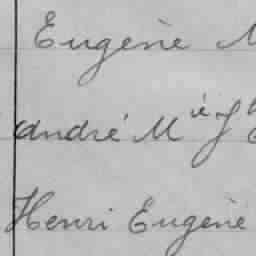 Eugène M
André Mie Jh
Henri Eugène